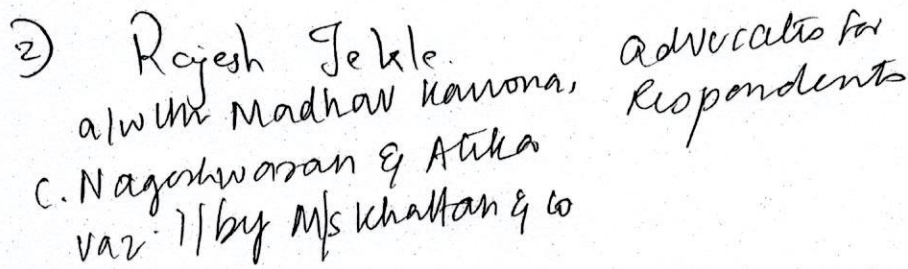 2) Rajesh Tekle.
a/with Madhav Kanoria,
C. Nageshwaran & Atika
Vaz i/by M/s Khaitan & Co
Advocates for
Respondents